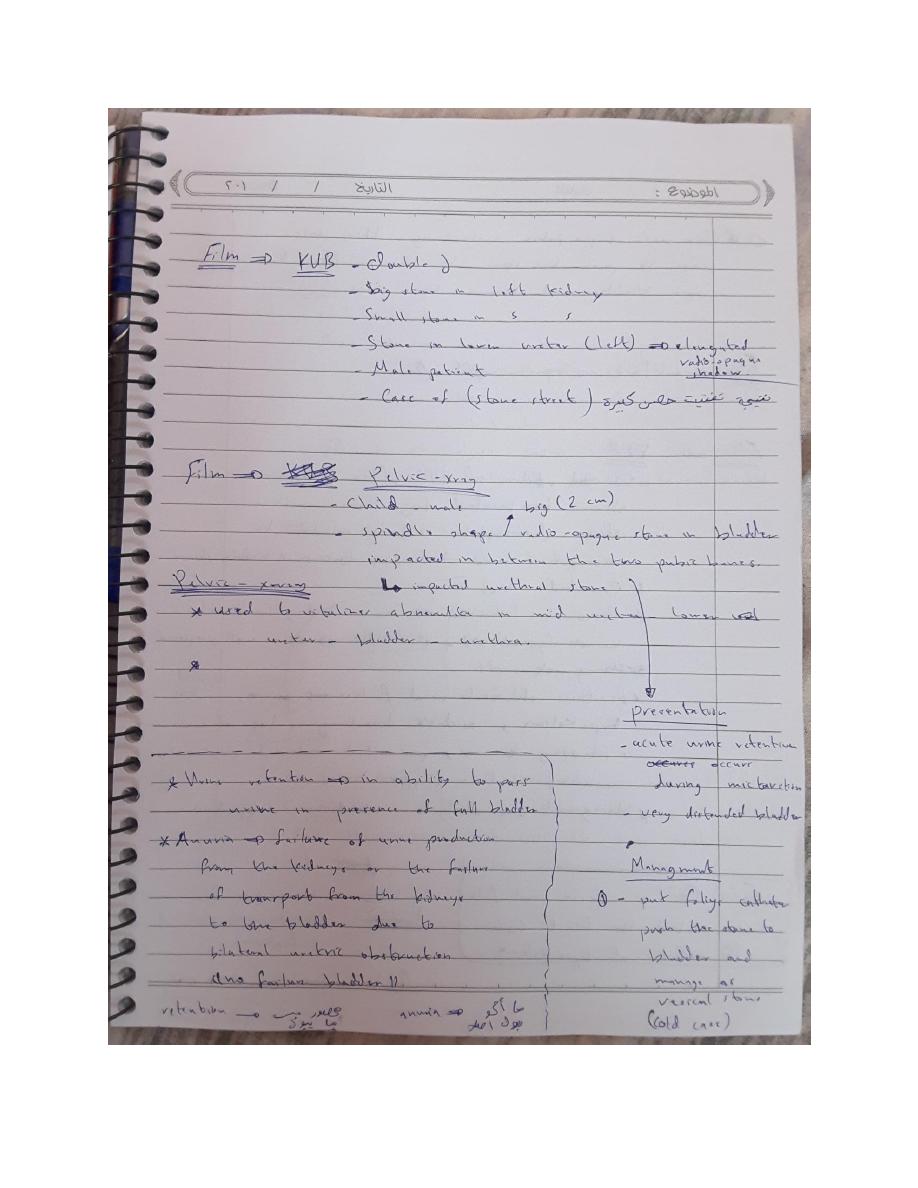 الموضوع :
التاريخ / / ٢٠١
Film ⇒ KUB - double J
- big stone in left kidney
- Small stone in s s
- Stone in lower ureter (left) ⇒ elongated
radio-opaque
shadow.
- Male patient
- Case of (stone street) نتيجة تفتيت حصى كبيرة
Film ⇒ Pelvic-xray
- Child - male
big (2 cm)
- spindle shape / radio-opaque stone in bladder
impacted in between the two pubic bones.
↳ impacted urethral stone.
Pelvic - xray
* used to in mid ureter lower
ureter - bladder - urethra.
*
presentation
- acute urine retention
occurs
during micturction
- very distended bladder
Managment
① - put foliys catheter
push the stone to
bladder and
manage as
vesical stone
(cold case)
* Urine retention ⇒ in ability to pass
urine in presence of full bladder
* Anuria ⇒ failure of urine production
from the kidneys or the failure
of transport from the kidneys
to the bladder due to
bilateral uretric obstruction
failure bladder !!
retention →
anuria ⇒ ماكو